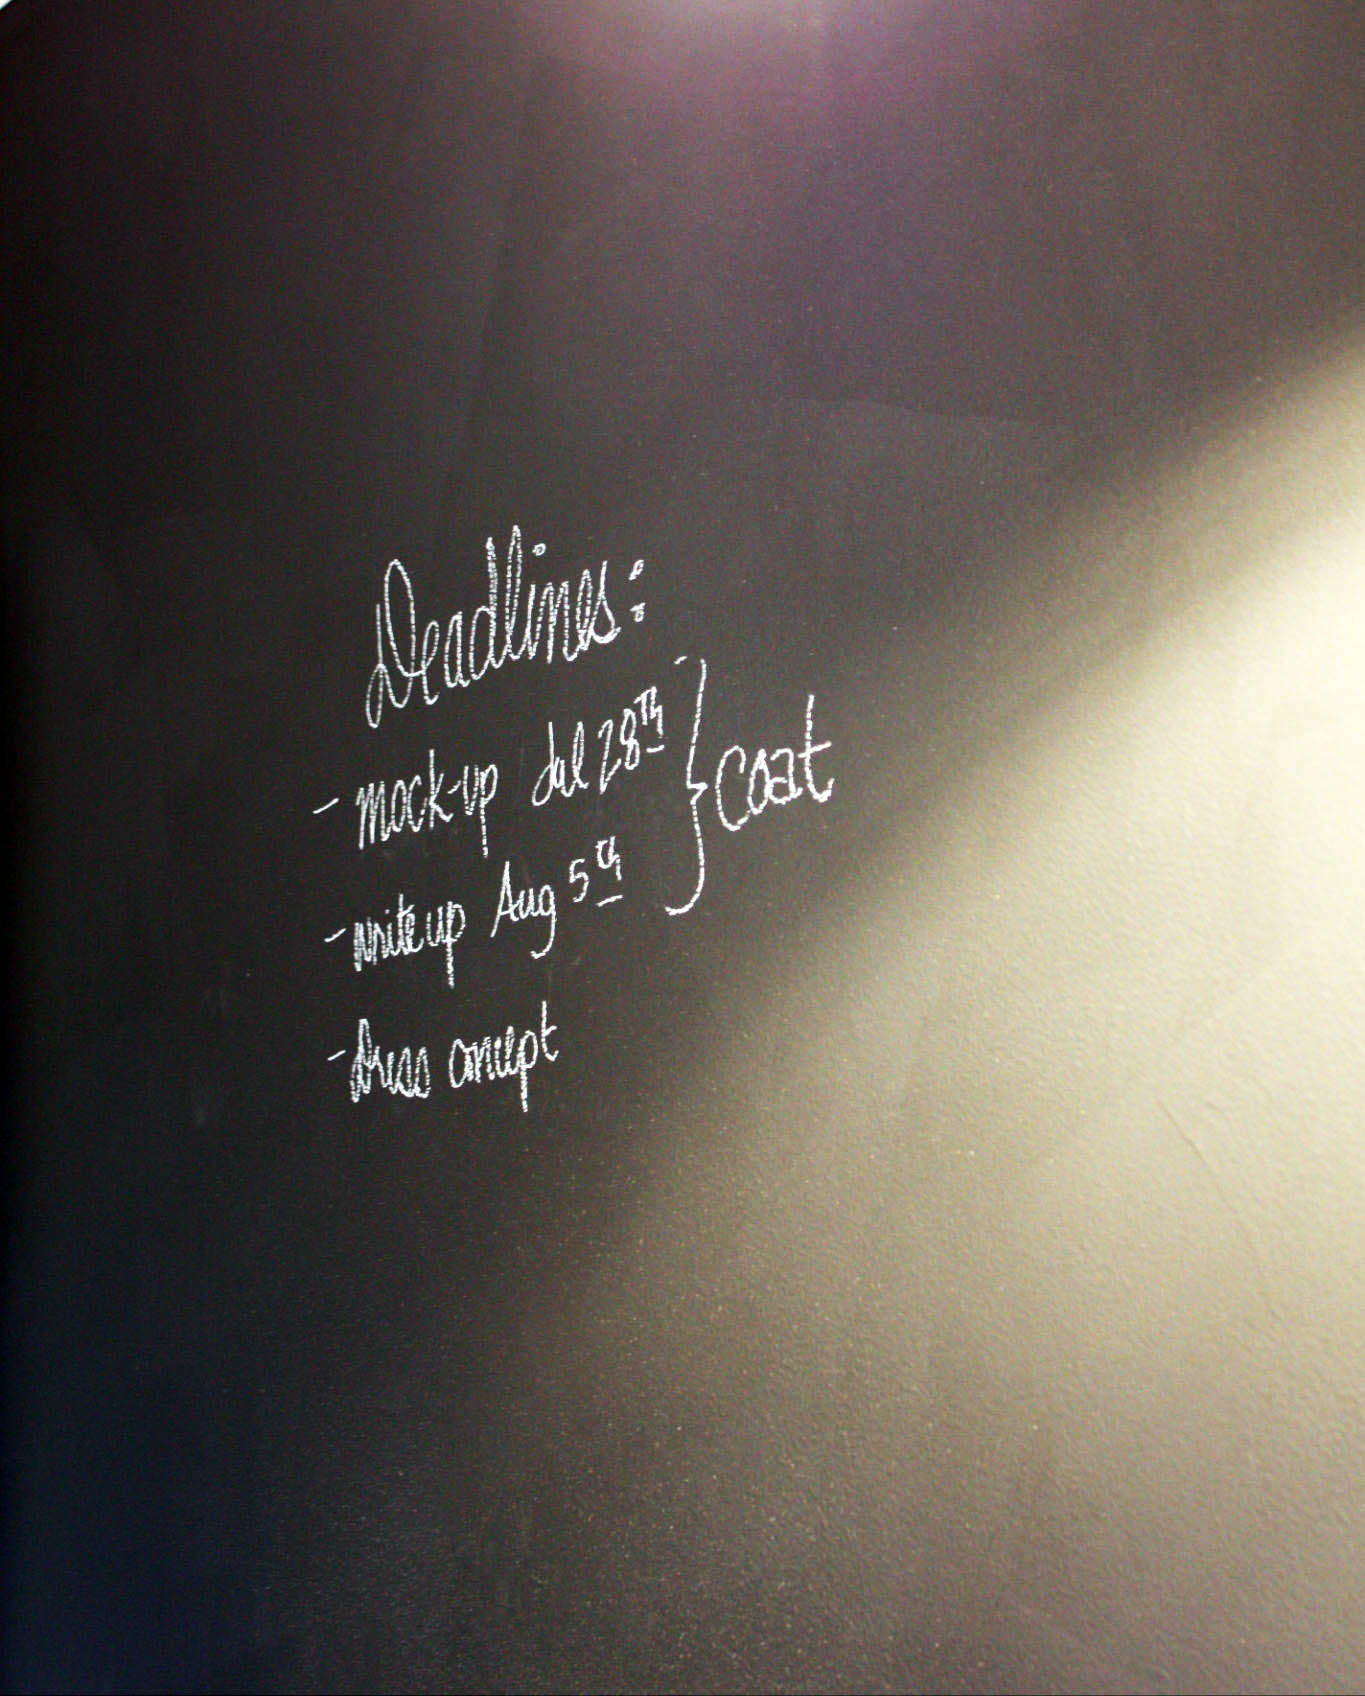 Deadlines:
- mock-up Jul 28th } Coat
- write up Aug 5th
- Dress concept